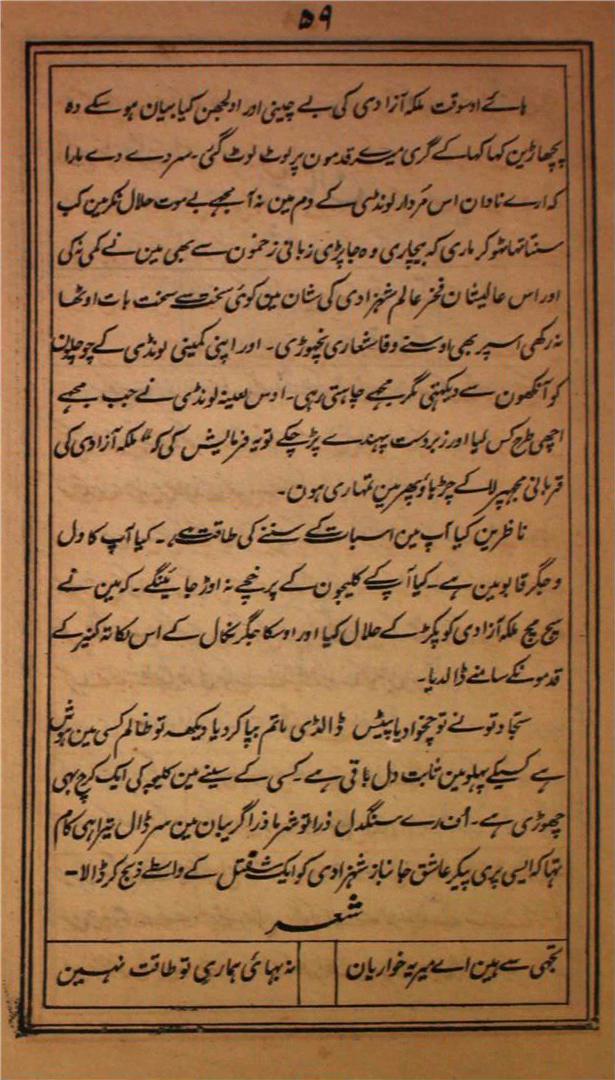 ۵۹
ہائے اوسوقت ملکہ آزادی کی بے چینی اور اولجھن کیا بیان ہو سکے وہ
پچھاڑین کہا کہا کے گری میرے قدمون پر لوٹ لوٹ گئی۔ سر دے دے مارا
کہ ارے نادان اس مردار لونڈی کے دم مین نہ آ مجھے بے موت حلال نکر مین کب
سنتا تہا ٹھوکر ماری کہ بیچاری وہ جا پڑی زبانی زخمون سے بھی مین نے کمی نہ کی
اور اس عالیشان فخر عالم شہزادی کی شان مین کوئی سخت سے سخت بات اوٹھا
نہ رکھی اسپر بھی اوسنے وفا شعاری نچھوڑی۔ اور اپنی کمینی لونڈی کے چوچلون
کو آنکھون سے دیکہتی مگر مجھے چاہتی رہی۔ اوس لعینہ لونڈی نے جب مجھے
اچھی طرح کس لیا اور زبردست پہندے پڑ چکے تو یہ فرمایش کی کہ "ملکہ آزادی کی
قربانی مجہپر لا کے چڑہاؤ پھر مین تمہاری ہون۔
ناظرین کیا آپ مین اسبات کے سننے کی طاقت ہے۔ کیا آپ کا دل
و جگر قابو مین ہے۔ کیا آپ کے کلیجون کے پرخچے نہ اوڑ جائینگے۔ کہ مین نے
سچ مچ ملکہ آزادی کو پکڑ کے حلال کیا اور اوسکا جگر نکال کے اس لکاتہ کنیز کے
قدمونکے سامنے ڈالدیا۔
سجاد تو نے تو چخوا دیا پیٹس ڈالدی ماتم بپا کر دیا دیکھہ تو ظالم کسی مین ہوش
ہے کسیکے پہلو مین ثابت دل باقی ہے۔ کسی کے سینے مین کلیجہ کی ایک کرچ بہی
چھوڑی ہے۔ اُف رے سنگدل ذرا تو شرما ذرا گریبان مین سر ڈال تیرا ہی کام
تہا کہ ایسی پری پیکر عاشق جانباز شہزادی کو ایک شفتل کے واسطے ذبح کر ڈالا۔
شعر
تجھی سے ہین اے میر یہ خواریان
نہ بہائی ہماری تو طاقت نہین